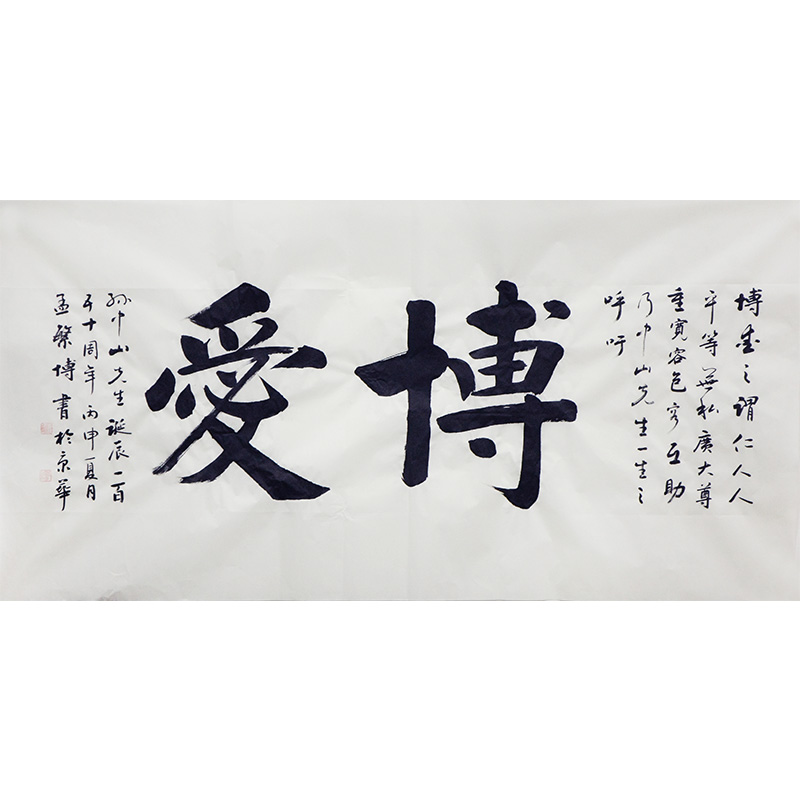 博愛之謂仁人人
平等無私廣大尊
重寬容包容互助
乃中山先生一生之
呼吁
博愛
孫中山先生誕辰一百
五十周年丙申夏月
孟繁博書於京華